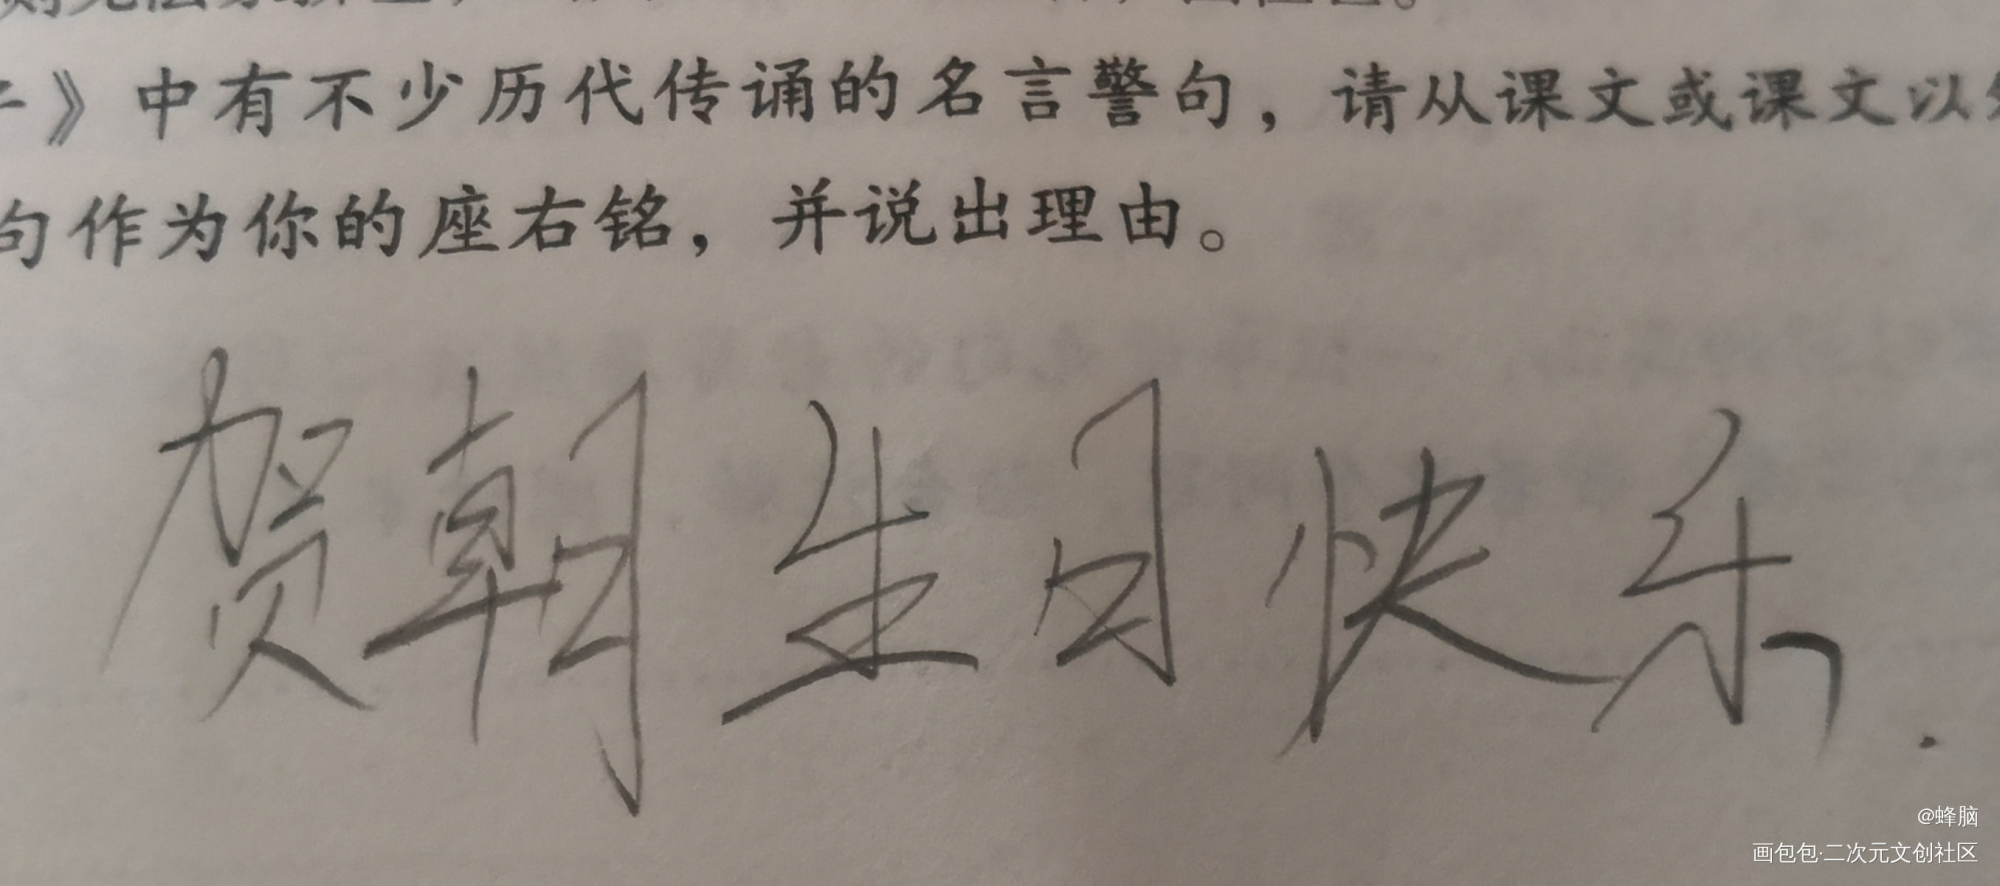 》中有不少历代传诵的名言警句，请从课文或课文以
句作为你的座右铭，并说出理由。
贺朝生日快乐.
@蜂脑
画包包·二次元文创社区